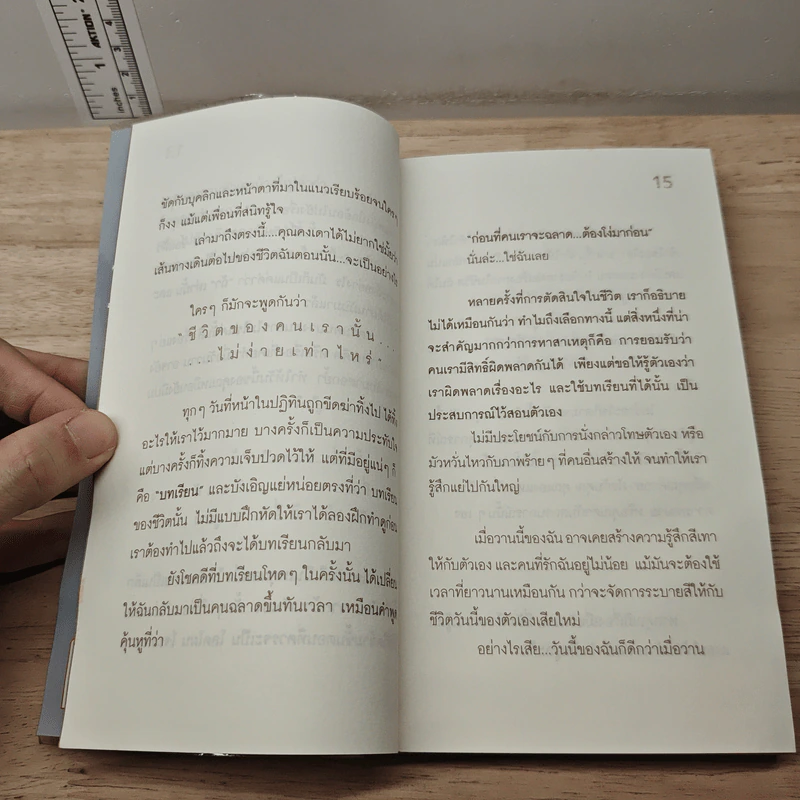 AKTION
inches
1
2
3
4
ขัดกับบุคลิกและหน้าตาที่มาในแนวเรียบร้อยจนใครๆ
ก็งง แม้แต่เพื่อนที่สนิทรู้ใจ
เล่ามาถึงตรงนี้....คุณคงเดาได้ไม่ยากใช่มั้ยว่า
เส้นทางเดินต่อไปของชีวิตฉันตอนนั้น...จะเป็นอย่างไร
ใครๆ ก็มักจะพูดกันว่า
"ชีวิตของคนเรานั้น...
...ไม่ง่ายเท่าไหร่"
ทุกๆ วันที่หน้าในปฏิทินถูกขีดฆ่าทิ้งไป ได้ทิ้ง
อะไรให้เราไว้มากมาย บางครั้งก็เป็นความประทับใจ
แต่บางครั้งก็ทิ้งความเจ็บปวดไว้ให้ แต่ที่มีอยู่แน่ๆ ก็
คือ "บทเรียน" และบังเอิญแย่หน่อยตรงที่ว่า บทเรียน
ของชีวิตนั้น ไม่มีแบบฝึกหัดให้เราได้ลองฝึกทำดูก่อน
เราต้องทำไปแล้วถึงจะได้บทเรียนกลับมา
ยังโชคดีที่บทเรียนโหดๆ ในครั้งนั้น ได้เปลี่ยน
ให้ฉันกลับมาเป็นคนฉลาดขึ้นทันเวลา เหมือนคำพูด
คุ้นหูที่ว่า
15
"ก่อนที่คนเราจะฉลาด...ต้องโง่มาก่อน"
นั่นล่ะ...ใช่ฉันเลย
หลายครั้งที่การตัดสินใจในชีวิต เราก็อธิบาย
ไม่ได้เหมือนกันว่า ทำไมถึงเลือกทางนี้ แต่สิ่งหนึ่งที่น่า
จะสำคัญมากกว่าการหาสาเหตุก็คือ การยอมรับว่า
คนเรามีสิทธิ์ผิดพลาดกันได้ เพียงแต่ขอให้รู้ตัวเองว่า
เราผิดพลาดเรื่องอะไร และใช้บทเรียนที่ได้นั้น เป็น
ประสบการณ์ไว้สอนตัวเอง
ไม่มีประโยชน์กับการนั่งกล่าวโทษตัวเอง หรือ
มัวหวั่นไหวกับภาพร้ายๆ ที่คนอื่นสร้างให้ จนทำให้เรา
รู้สึกแย่ไปกันใหญ่
เมื่อวานนี้ของฉัน อาจเคยสร้างความรู้สึกสีเทา
ให้กับตัวเอง และคนที่รักฉันอยู่ไม่น้อย แม้มันจะต้องใช้
เวลาที่ยาวนานเหมือนกัน กว่าจะจัดการระบายสีให้กับ
ชีวิตวันนี้ของตัวเองเสียใหม่
อย่างไรเสีย...วันนี้ของฉันก็ดีกว่าเมื่อวาน